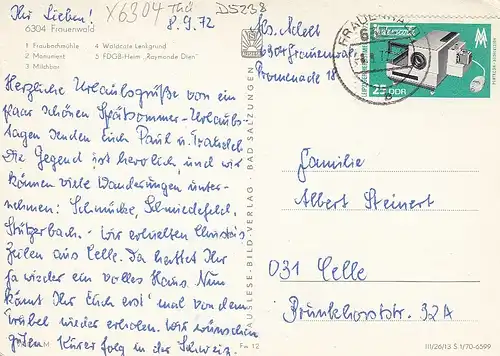 Ihr Lieben!
X6304 Thü
D5238
8.9.72
6304 Frauenwald
1 Fraubachmühle
2 Monument
3 Milchbar
4 Waldcafe Lenkgrund
5 FDGB-Heim „Raymonde Dien"
Herzliche Urlaubsgrüße von ein
paar schönen Spätsommer-Urlaubs-
tagen senden Euch Paul u.
Die Gegend ist herrlich und wir
können viele Wanderungen unter-
nehmen: Schmücke, Schmiedefeld,
Stützerbach. - Wir erhielten Christels
Zeilen aus Celle. Da hattet Ihr
ja wieder ein volles Haus. Nun
könnt Ihr Euch erst 'mal von dem
Trubel wieder erholen. Wir wünschen
guten Kurerfolg in der Schweiz.
AUSLESE-BILD-VERLAG · BAD SALZUNGEN
M
Fa 12
Abs.
6304 Frauenwald
Promenade 18
FRAUENWALD
25 DDR
Familie
Albert Steinert
031 Celle
Prunkhorststr. 32A
III/26/13 S 1/70-6599